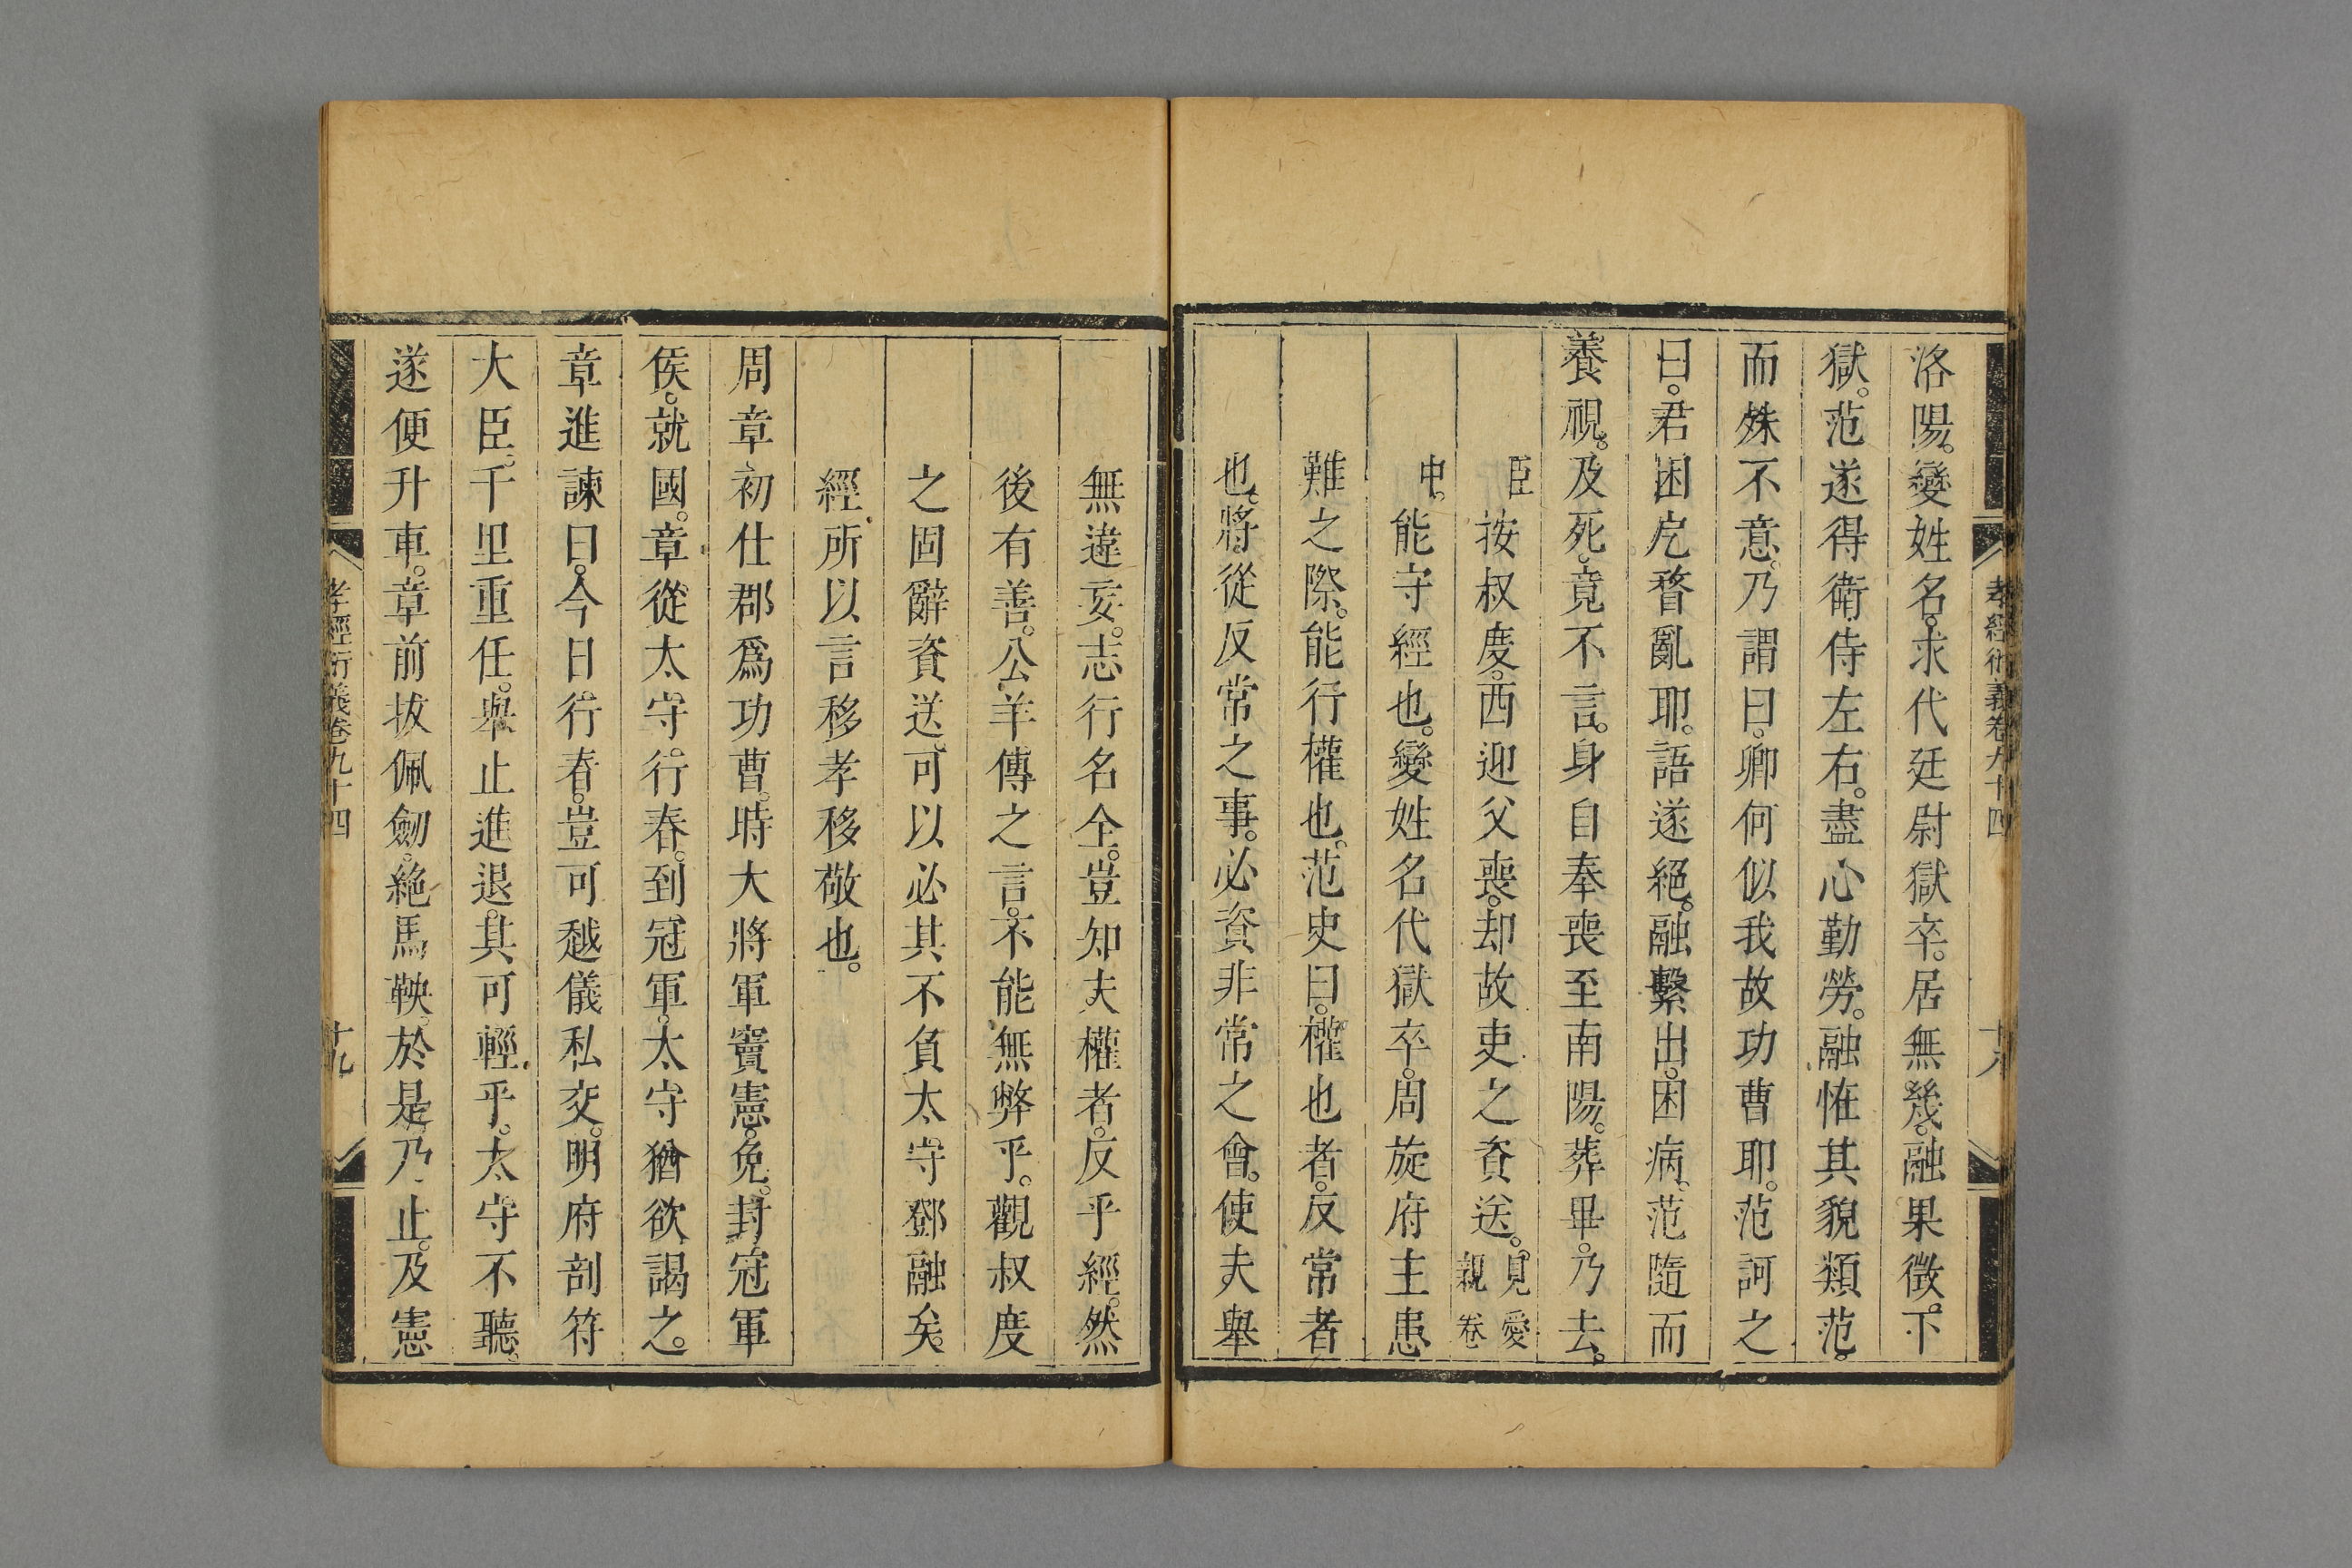 孝經衍義卷九十四 十八
洛陽。變姓名。求代廷尉獄卒。居無幾。融果徵。下
獄。范遂得衛侍左右。盡心勤勞。融恠其貌類范。
而殊不意。乃謂曰。卿何似我故功曹耶。范訶之
曰。君困戹瞀亂耶。語遂絕。融繫出。困病。范隨而
養視。及死。竟不言。身自奉喪至南陽。葬畢。乃去。
臣按叔度。西迎父喪。却故吏之資送。見愛親卷
中。能守經也。變姓名代獄卒。周旋府主患
難之際。能行權也。范史曰。權也者。反常者
也。將從反常之事。必資非常之會。使夫舉
無違妄。志行名全。豈知夫權者。反乎經。然
後有善。公羊傳之言。不能無弊乎。觀叔度
之固辭資送。可以必其不負太守鄧融矣。
經所以言移孝移敬也。
周章初仕郡爲功曹。時大將軍竇憲。免。封冠軍
侯。就國。章從太守。行春。到冠軍。太守猶欲謁之。
章進諫曰。今日行春。豈可越儀私交。明府剖符
大臣。千里重任。舉止進退。其可輕乎。太守不聽。
遂便升車。章前拔佩劒。絶馬鞅。於是乃止。及憲
孝經衍義卷九十四 十九